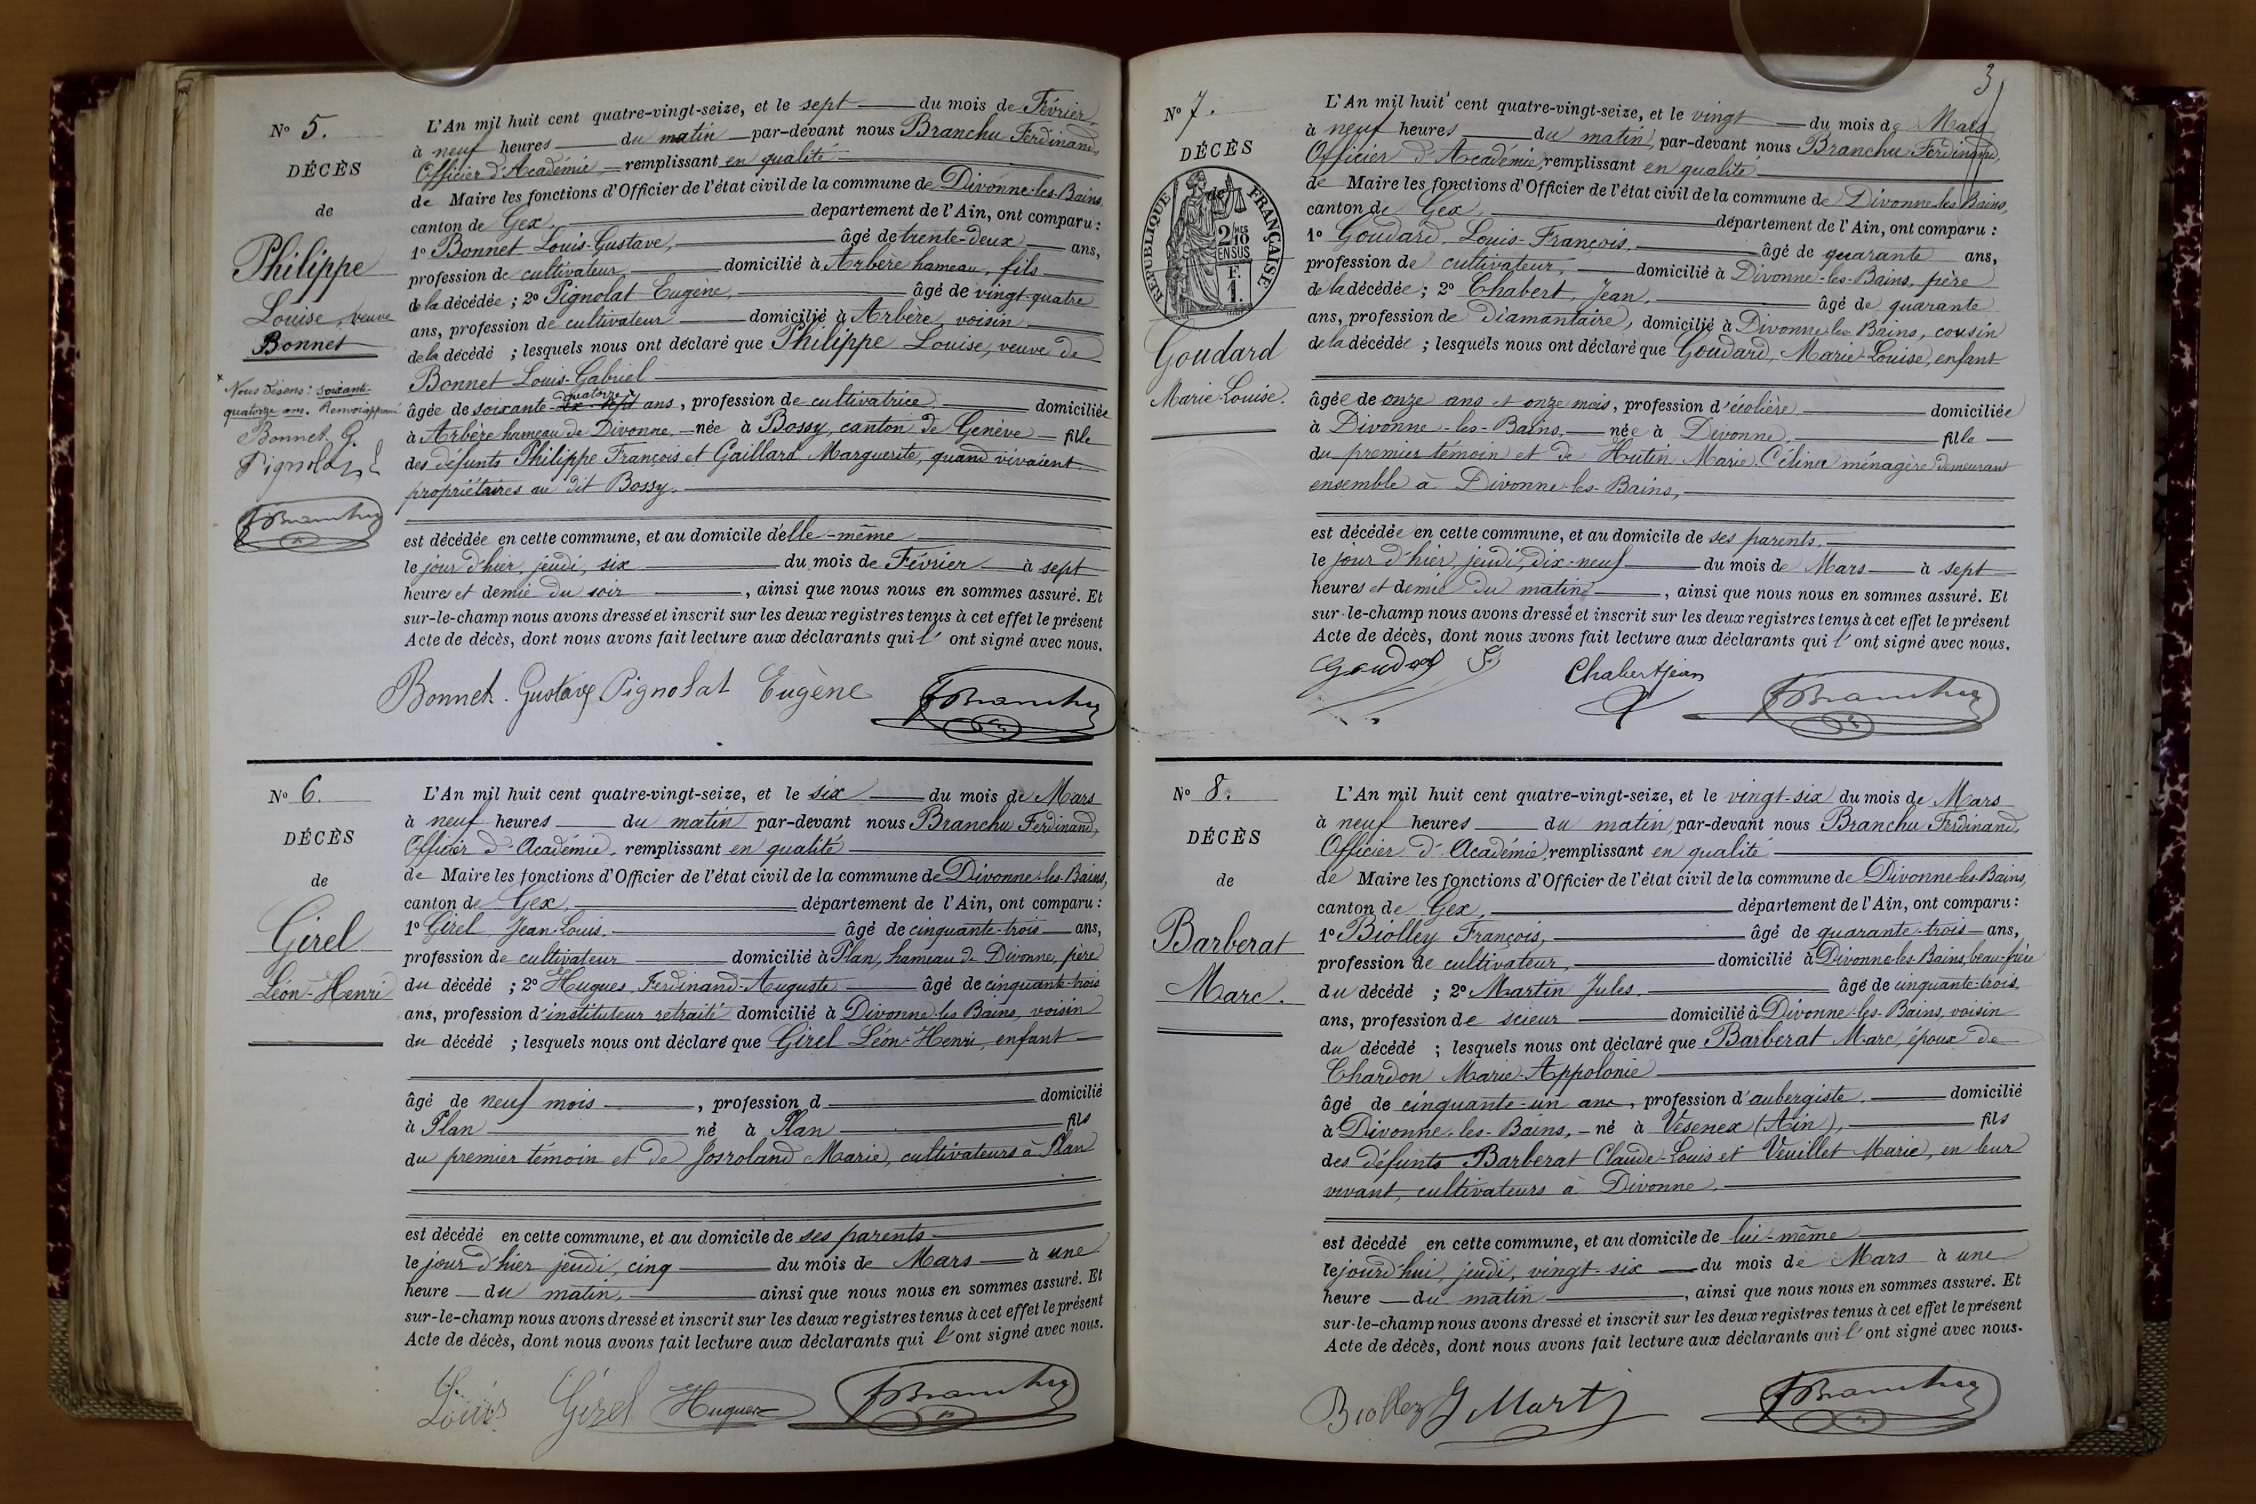 No 5.
DÉCÈS
de
Philippe
Louise, veuve
Bonnet
x Nous disons : soixante-
quatorze ans. Renvoi approuvé
Bonnet G.
Pignolat
FBranchu
L'An mil huit cent quatre-vingt-seize, et le sept du mois de Février,
à neuf heures du matin par-devant nous Branchu Ferdinand,
Officier d'Académie, remplissant en qualité
de Maire les fonctions d'Officier de l'état civil de la commune de Divonne-les-Bains,
canton de Gex, département de l'Ain, ont comparu :
1o Bonnet Louis-Gustave, âgé de trente-deux ans,
profession de cultivateur, domicilié à Arbère hameau, fils
de la décédée ; 2o Pignolat Eugène, âgé de vingt-quatre
ans, profession de cultivateur domicilié à Arbère, voisin
de la décédé ; lesquels nous ont déclaré que Philippe Louise, veuve de
Bonnet Louis-Gabriel
quatorze x
âgée de soixante-dix-sept ans, profession de cultivatrice domiciliée
à Arbère hameau de Divonne, née à Bossy, canton de Genève fille
des défunts Philippe François et Gaillard Marguerite, quand vivaient
propriétaires au dit Bossy.
est décédée en cette commune, et au domicile d'elle-même
le jour d'hier, jeudi, six du mois de Février à sept
heures et demie du soir, ainsi que nous nous en sommes assuré. Et
sur-le-champ nous avons dressé et inscrit sur les deux registres tenus à cet effet le présent
Acte de décès, dont nous avons fait lecture aux déclarants qui l'ont signé avec nous.
Bonnet Gustave Pignolat Eugène FBranchu
No 6.
DÉCÈS
de
Girel
Léon-Henri
L'An mil huit cent quatre-vingt-seize, et le six du mois de Mars
à neuf heures du matin par-devant nous Branchu Ferdinand,
Officier d'Académie, remplissant en qualité
de Maire les fonctions d'Officier de l'état civil de la commune de Divonne-les-Bains,
canton de Gex, département de l'Ain, ont comparu :
1o Girel Jean-Louis, âgé de cinquante-trois ans,
profession de cultivateur domicilié à Plan, hameau de Divonne, père
du décédé ; 2o Hugues Ferdinand-Auguste âgé de cinquante-trois
ans, profession d'instituteur retraité domicilié à Divonne-les-Bains, voisin
du décédé ; lesquels nous ont déclaré que Girel Léon-Henri, enfant
âgé de neuf mois, profession d domicilié
à Plan né à Plan fils
du premier témoin et de Josroland Marie, cultivateurs à Plan
est décédé en cette commune, et au domicile de ses parents
le jour d'hier jeudi, cinq du mois de Mars à une
heure du matin, ainsi que nous nous en sommes assuré. Et
sur-le-champ nous avons dressé et inscrit sur les deux registres tenus à cet effet le présent
Acte de décès, dont nous avons fait lecture aux déclarants qui l'ont signé avec nous.
Louis Girel Hugues FBranchu
3
No 7.
DÉCÈS
de
RÉPUBLIQUE FRANÇAISE
2/10 EN SUS
F. 1.
Goudard
Marie-Louise.
L'An mil huit cent quatre-vingt-seize, et le vingt du mois de Mars
à neuf heures du matin, par-devant nous Branchu Ferdinand,
Officier d'Académie, remplissant en qualité
de Maire les fonctions d'Officier de l'état civil de la commune de Divonne-les-Bains,
canton de Gex, département de l'Ain, ont comparu :
1o Goudard, Louis-François, âgé de quarante ans,
profession de cultivateur, domicilié à Divonne-les-Bains, père
de la décédée ; 2o Chabert, Jean, âgé de quarante
ans, profession de diamantaire, domicilié à Divonne-les-Bains, cousin
de la décédée ; lesquels nous ont déclaré que Goudard, Marie-Louise, enfant
âgée de onze ans et onze mois, profession d'écolière domiciliée
à Divonne-les-Bains, née à Divonne, fille
du premier témoin et de Hutin Marie-Célina ménagère demeurant
ensemble à Divonne-les-Bains,
est décédée en cette commune, et au domicile de ses parents,
le jour d'hier, jeudi, dix-neuf du mois de Mars à sept
heures et demie du matin, ainsi que nous nous en sommes assuré. Et
sur-le-champ nous avons dressé et inscrit sur les deux registres tenus à cet effet le présent
Acte de décès, dont nous avons fait lecture aux déclarants qui l'ont signé avec nous.
Goudard Chabert Jean FBranchu
No 8.
DÉCÈS
de
Barberat
Marc.
L'An mil huit cent quatre-vingt-seize, et le vingt-six du mois de Mars
à neuf heures du matin, par-devant nous Branchu Ferdinand,
Officier d'Académie, remplissant en qualité
de Maire les fonctions d'Officier de l'état civil de la commune de Divonne-les-Bains,
canton de Gex, département de l'Ain, ont comparu :
1o Biolley François, âgé de quarante-trois ans,
profession de cultivateur, domicilié à Divonne-les-Bains, beau-frère
du décédé ; 2o Martin Jules, âgé de cinquante-trois,
ans, profession de scieur domicilié à Divonne-les-Bains, voisin
du décédé ; lesquels nous ont déclaré que Barberat Marc, époux de
Chardon Marie-Appolonie
âgé de cinquante-un ans, profession d'aubergiste, domicilié
à Divonne-les-Bains, né à Vésenex (Ain), fils
des défunts Barberat Claude-Louis et Veuillet Marie, en leur
vivant, cultivateurs à Divonne.
est décédé en cette commune, et au domicile de lui-même
le jourd'hui, jeudi, vingt-six du mois de Mars à une
heure du matin, ainsi que nous nous en sommes assuré. Et
sur-le-champ nous avons dressé et inscrit sur les deux registres tenus à cet effet le présent
Acte de décès, dont nous avons fait lecture aux déclarants qui l'ont signé avec nous.
Biolley J Martin FBranchu